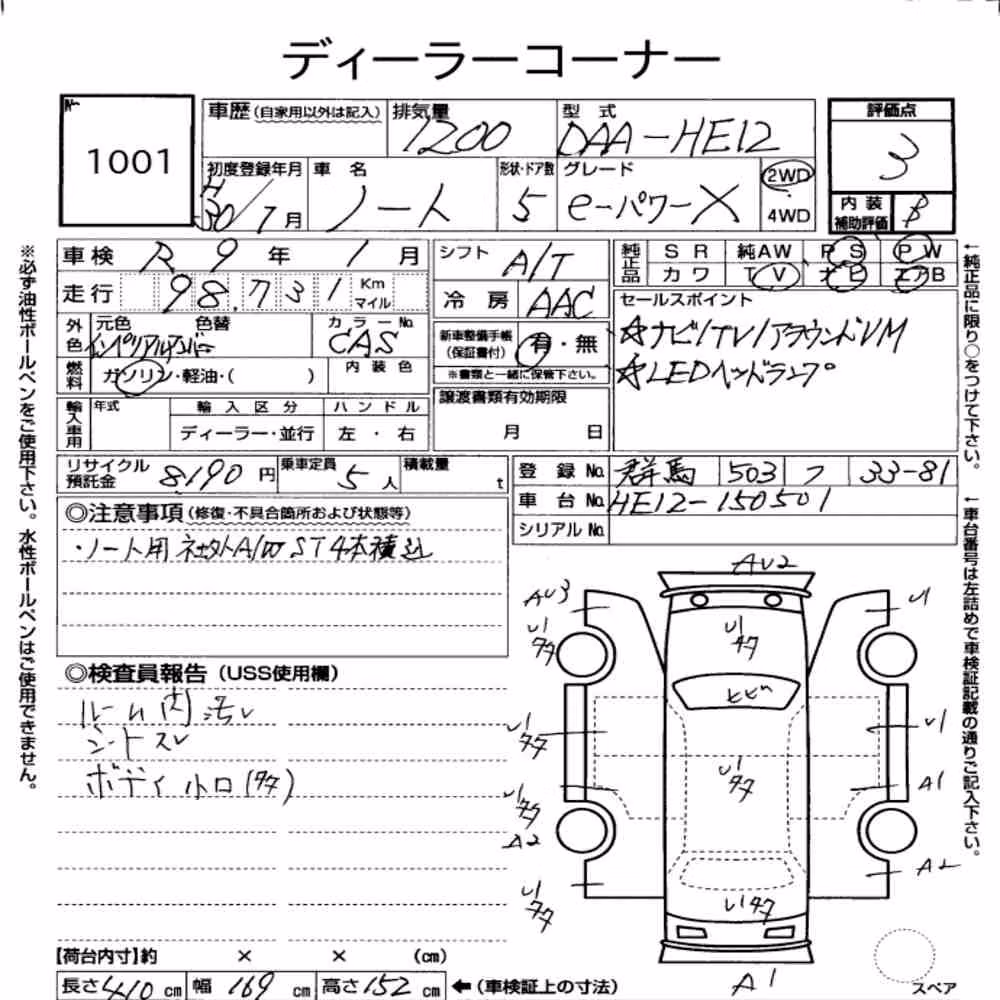 ディーラーコーナー
No.
1001
車歴(自家用以外は記入) 排気量 1200 型 式 DAA-HE12 評価点 3
初度登録年月 H30/7月 車 名 ノート 形状・ドア数 5 グレード e-パワーX 2WD 4WD
内 装 補助評価 B
車検 R 9 年 1 月 シフト A/T 純正品 SR 純AW PS PW
カワ TV ナビ エアB
走行 98,731 Km マイル 冷 房 AAC
セールスポイント
☆ナビ/TV/アラウンドVM
☆LEDヘッドランプ
外色 元色 色替 インペリアルアンバー カラーNo. CAS
新車整備手帳 (保証書付) 有・無
※書類と一緒に保管下さい。
燃料 ガソリン・軽油・( ) 内 装 色
輸入車用 年式 輸 入 区 分 ハ ン ド ル
ディーラー・並行 左 ・ 右
譲渡書類有効期限
月 日
リサイクル預託金 8190 円 乗車定員 5 人 積載量 t
登 録 No. 群馬 503 フ 33-81
車 台 No. HE12-150501
シリアル No.
◎注意事項(修復・不具合箇所および状態等)
・ノート用 社外A/W ST4本積込
◎検査員報告(USS使用欄)
ルーム内汚レ
シートスレ
ボディ小ロ(タタ)
AU2
AU3
U1
U1タタ
U1タタ
ヒビ
U1タタ
U1
U1タタ
A1
U1タタ
A2
A2
U1タタ
U1タタ
A1
スペア
【荷台内寸】約 × × (cm)
長さ 410 cm 幅 169 cm 高さ 152 cm ←(車検証上の寸法)
※必ず油性ボールペンをご使用下さい。水性ボールペンはご使用できません。
←純正品に限り○をつけて下さい。
←車台番号は左詰めで車検証記載の通りご記入下さい。